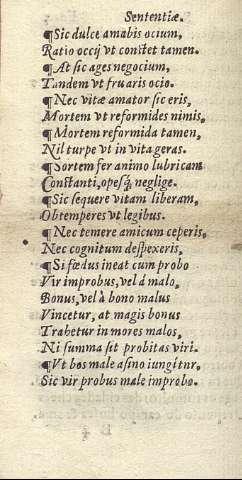 Sententiæ.
¶Sic dulce amabis ocium,
Ratio occij vt constet tamen.
¶At sic ages negocium,
Tandem vt fruaris ocio.
¶Nec vitæ amator sic eris,
Mortem vt reformides nimis,
¶Mortem reformida tamen,
Nil turpe vt in vita geras.
¶Sortem fer animo lubricam
Constanti, opesq; neglige.
¶Sic sequere vitam liberam,
Obtemperes vt legibus.
¶Nec temere amicum ceperis,
Nec cognitum despexeris,
¶Si fœdus ineat cum probo
Vir improbus, vel à malo,
Bonus, vel à bono malus
Vincetur, at magis bonus
Trahetur in mores malos,
Ni summa sit probitas viri.
¶Vt bos male asino iungitur,
Sic vir probus male improbo.